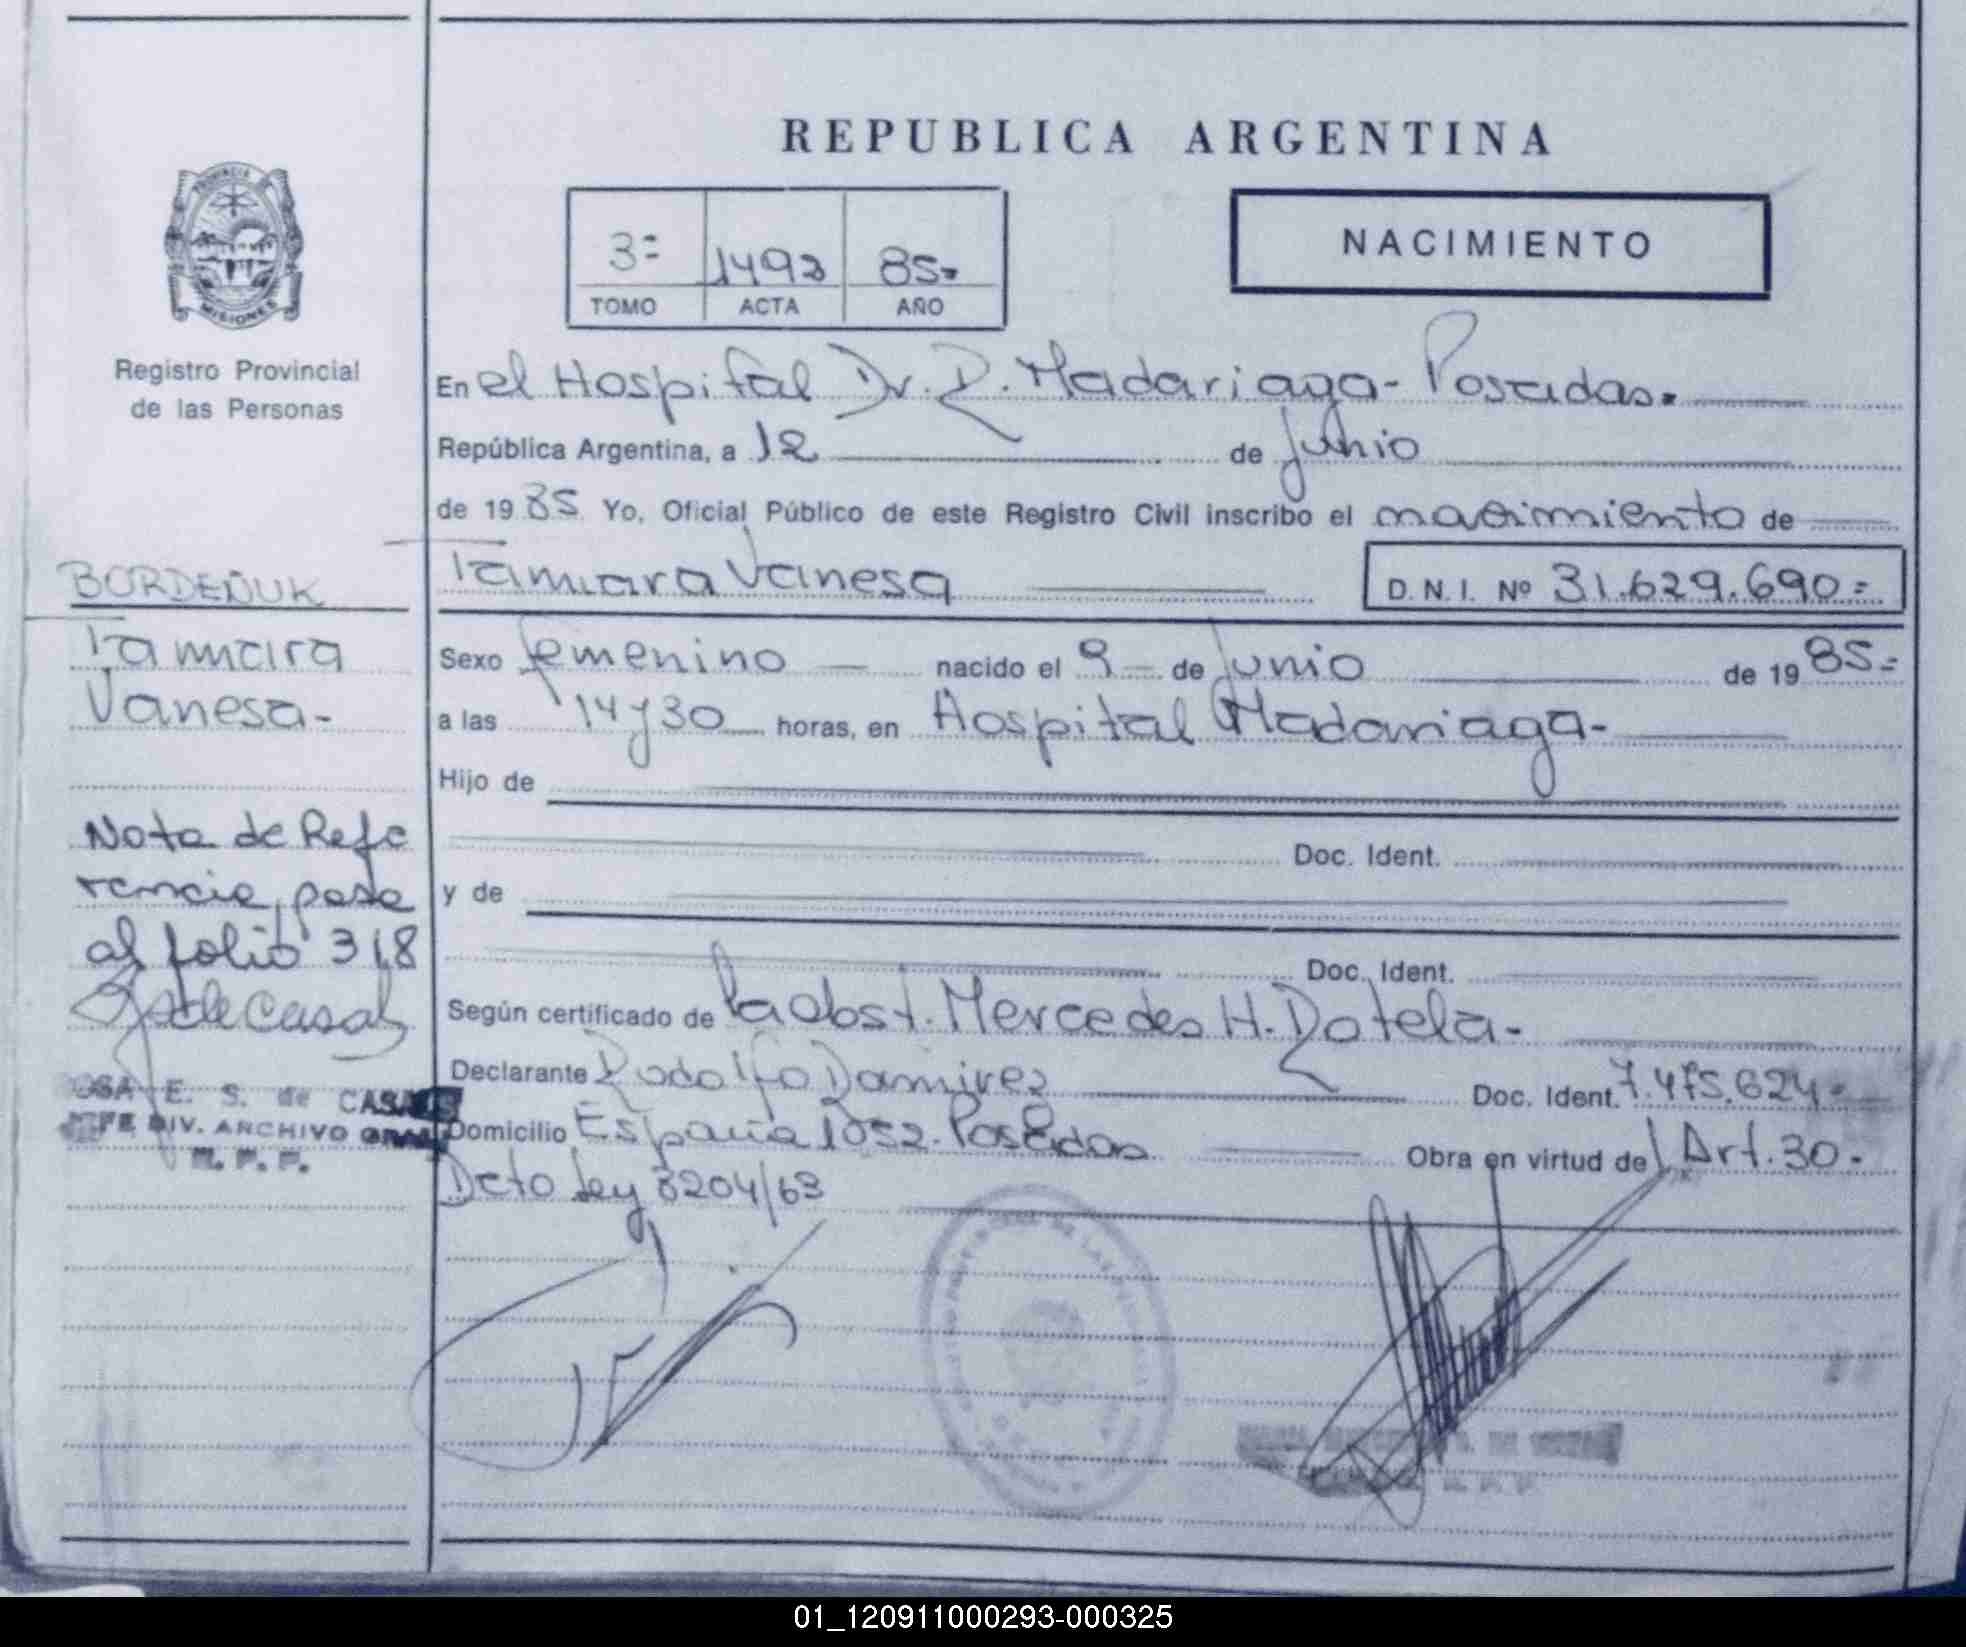 REPUBLICA ARGENTINA
PROVINCIA
MISIONES
Registro Provincial
de las Personas
3=
TOMO
1492
ACTA
85-
AÑO
NACIMIENTO
En el Hospital Dr. R. Madariaga - Posadas.
República Argentina, a 12 de Junio
de 19 85 Yo, Oficial Público de este Registro Civil inscribo el nacimiento de
Tamara Vanesa D. N. I. Nº 31.629.690=
Sexo femenino nacido el 9 de Junio de 19 85=
a las 14 y 30 horas, en Hospital Madariaga-
Hijo de
Doc. Ident.
y de
Doc. Ident.
Según certificado de la obst. Mercedes H. Rotela-
Declarante Rodolfo Ramirez Doc. Ident. 7.475.624-
Domicilio España 1052. Posadas Obra en virtud del Art. 30.
Dcto Ley 8204/63
BORDEÑUK
Tamara
Vanesa-
Nota de Refe
rencia, pasa
al folio 318
E. S. de CASALS
JEFE DIV. ARCHIVO GRAL
R. P. P.
01_120911000293-000325